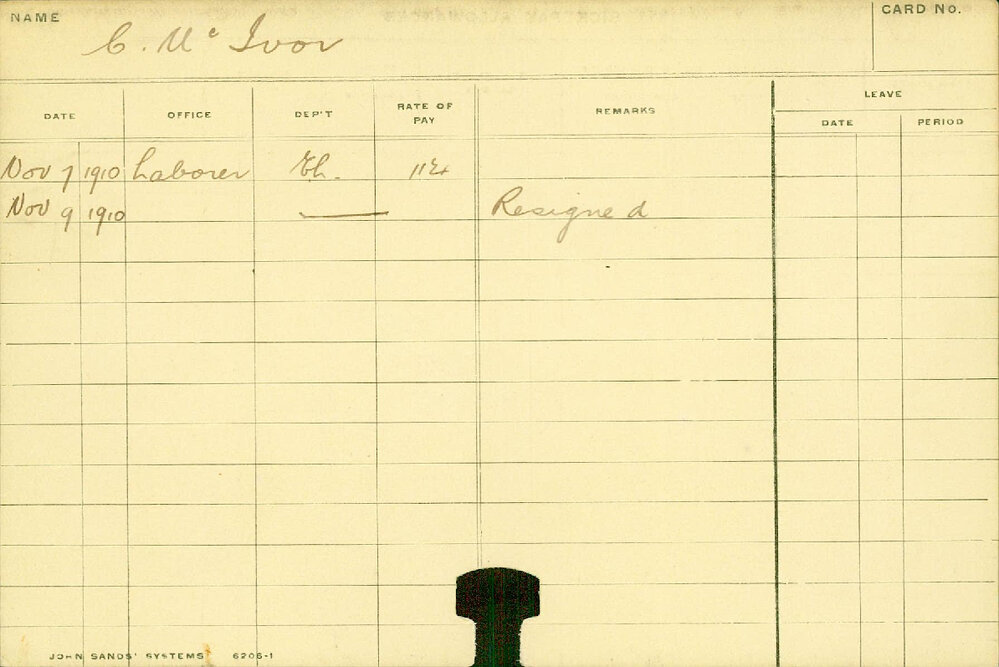 NAME C. Mc Ivor CARD No.
LEAVE
DATE OFFICE DEP'T RATE OF PAY REMARKS DATE PERIOD
Nov 7 1910 Laborer
Nov 9 1910 Resigned
JOHN SANDS' SYSTEMS 6206-1